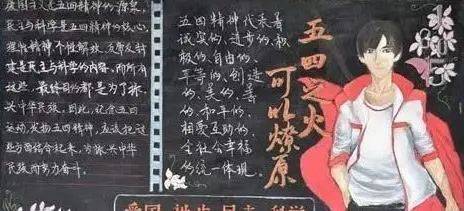 爱国主义是五四精神的源泉,
民主与科学是五四精神的核心,
理性精神 个性解放 反帝反封
建是民主与科学的内容,而所有
这些,最终目的都是为了振
兴中华民族,因此,纪念五四
运动,发扬五四精神,应该把这
些方面结合起来,为振兴中华
民族而努力奋斗。
五四精神代表着
诚实的、进步的、积
极的、自由的、
平等的、创造
的、美的、善
的、和平的、
相爱互助的、
全社会幸福
的统一体现。
五四之火
可以燎原
爱国 进步 民主 科学